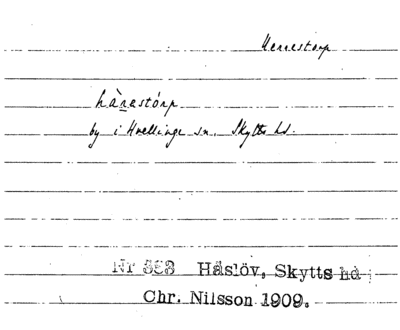 Herrestorp
hàrestórp
by i Hvellinge sn. Skytts hd.
Nr 553 Håslöv, Skytts hd
Chr. Nilsson 1909.